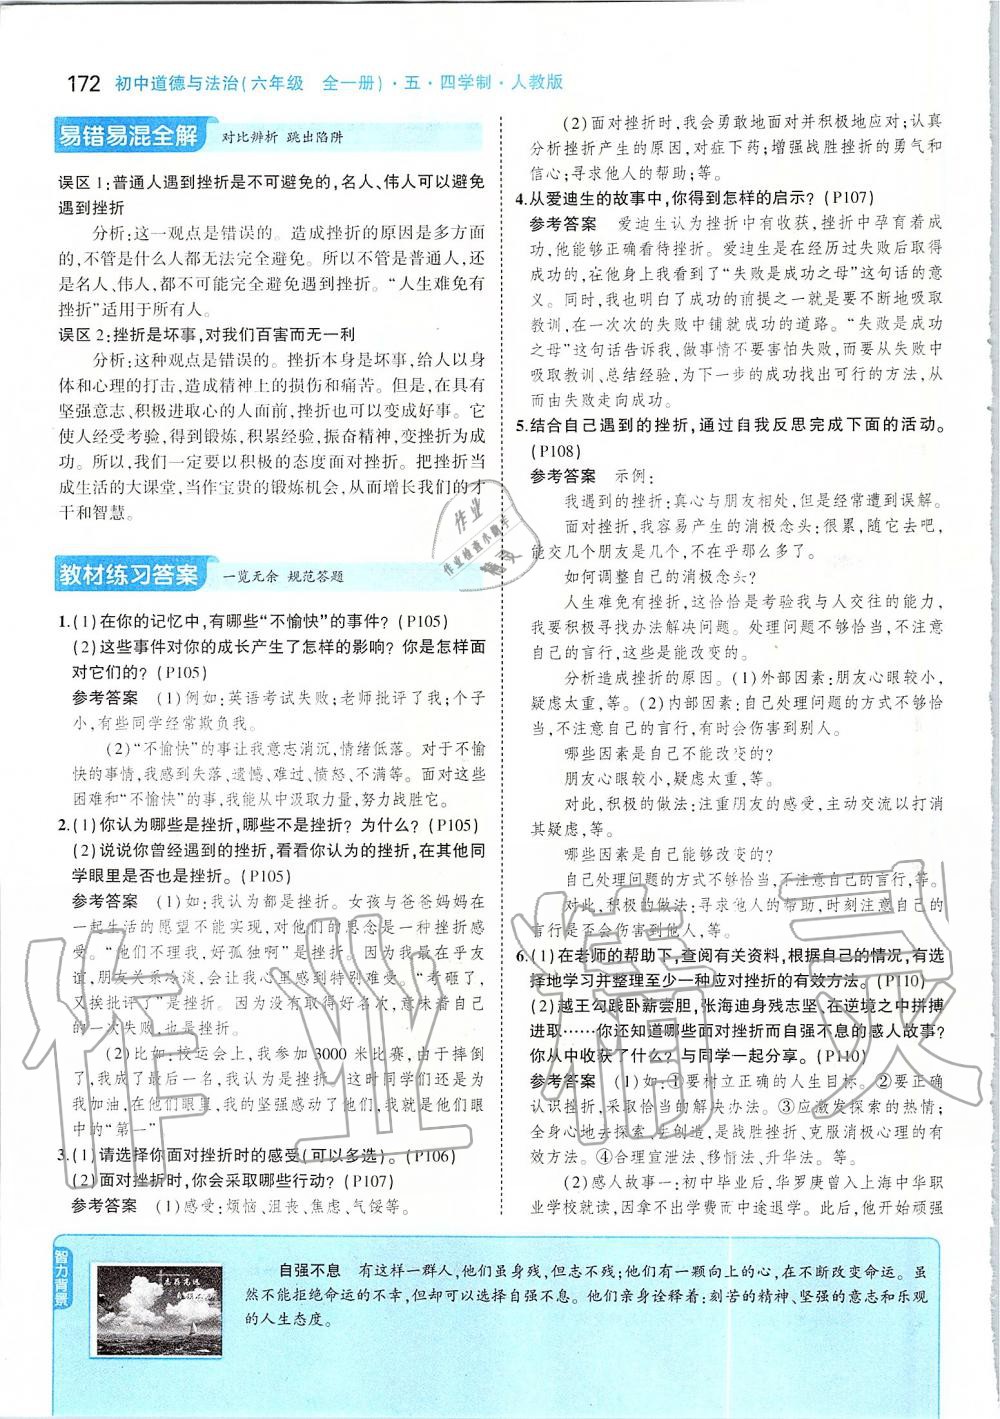 172 初中道德与法治(六年级 全一册)·五·四学制·人教版
易错易混全解 对比辨析 跳出陷阱
误区1:普通人遇到挫折是不可避免的,名人、伟人可以避免
遇到挫折
分析:这一观点是错误的。造成挫折的原因是多方面
的,不管是什么人都无法完全避免。所以不管是普通人,还
是名人、伟人,都不可能完全避免遇到挫折。“人生难免有
挫折”适用于所有人。
误区2:挫折是坏事,对我们百害而无一利
分析:这种观点是错误的。挫折本身是坏事,给人以身
体和心理的打击,造成精神上的损伤和痛苦。但是,在具有
坚强意志、积极进取心的人面前,挫折也可以变成好事。它
使人经受考验,得到锻炼,积累经验,振奋精神,变挫折为成
功。所以,我们一定要以积极的态度面对挫折。把挫折当
成生活的大课堂,当作宝贵的锻炼机会,从而增长我们的才
干和智慧。
教材练习答案 一览无余 规范答题
1.(1)在你的记忆中,有哪些“不愉快”的事件?(P105)
(2)这些事件对你的成长产生了怎样的影响?你是怎样面
对它们的?(P105)
参考答案 (1)例如:英语考试失败;老师批评了我;个子
小,有些同学经常欺负我。
(2)“不愉快”的事让我意志消沉,情绪低落。对于不愉
快的事情,我感到失落、遗憾、难过、愤怒、不满。面对这些
困难和“不愉快”的事,我能从中汲取力量,努力战胜它。
2.(1)你认为哪些是挫折,哪些不是挫折?为什么?(P105)
(2)说说你曾经遇到的挫折,看看你认为的挫折,在其他同
学眼里是否也是挫折。(P105)
参考答案 (1)如:我认为都是挫折。女孩与爸爸妈妈在
一起生活的愿望不能实现,对他们的思念是一种挫折感
受。“他们不理我,好孤独啊”是挫折。因为我最在乎友
谊,朋友关系冷淡,会让我心里感到特别难受。“考砸了,
又挨批评了”是挫折。因为没有取得好名次,意味着自己
的一次失败,也是挫折。
(2)比如:校运会上,我参加3000米比赛,由于摔倒
了,我成了最后一名,我认为是挫折。这时同学们还是为
我加油,在他们眼里,我的坚强感动了他们,我就是他们眼
中的“第一”
3.(1)请选择你面对挫折时的感受(可以多选)。(P106)
(2)面对挫折时,你会采取哪些行动?(P107)
参考答案 (1)感受:烦恼、沮丧、焦虑、气馁等。
(2)面对挫折时,我会勇敢地面对并积极地应对;认真
分析挫折产生的原因,对症下药;增强战胜挫折的勇气和
信心;寻求他人的帮助;等。
4.从爱迪生的故事中,你得到怎样的启示?(P107)
参考答案 爱迪生认为挫折中有收获,挫折中孕育着成
功,他能够正确看待挫折。爱迪生是在经历过失败后取得
成功的,在他身上我看到了“失败是成功之母”这句话的意
义。同时,我也明白了成功的前提之一就是要不断地吸取
教训,在一次次的失败中铺就成功的道路。“失败是成功
之母”这句话告诉我,做事情不要害怕失败,而要从失败中
吸取教训、总结经验,为下一步的成功找出可行的方法,从
而由失败走向成功。
5.结合自己遇到的挫折,通过自我反思完成下面的活动。
(P108)
参考答案 示例:
我遇到的挫折:真心与朋友相处,但是经常遭到误解。
面对挫折,我容易产生的消极念头:很累,随它去吧,
能交几个朋友是几个,不在乎了,那么难干吗!
如何调整自己的消极念头?
人生难免有挫折,这恰恰是考验我与人交往的能力,
我要积极寻找办法解决问题。处理问题不够恰当,不注意
自己的言行,是能改变的。
分析造成挫折的原因。(1)外部因素:朋友心眼较小,
疑虑太重,等。(2)内部因素:自己处理问题的方式不够恰
当,不注意自己的言行,有时会伤害到别人。
哪些因素是自己不能改变的?
朋友心眼较小,疑虑太重,等。
对此,积极的做法:注重朋友的感受,主动交流以打消
其疑虑,等。
哪些因素是自己能够改变的?
自己处理问题的方式不够恰当,不注意自己的言行,等。
对此,积极的做法:寻求他人的帮助,时刻注意自己的
言行是否会伤害到他人,等。
6.(1)在老师的帮助下,查阅有关资料,根据自己的情况,有选
择地学习并整理至少一种应对挫折的有效方法。(P110)
(2)越王勾践卧薪尝胆,张海迪身残志坚,在逆境之中拼搏
进取……你还知道哪些面对挫折而自强不息的感人故事?
你从中收获了什么?与同学一起分享。(P110)
参考答案 (1)如:①要树立正确的人生目标。②要正确
认识挫折,采取恰当的解决办法。③应激发探索的热情;
全身心地去探索,去创造,是战胜挫折、克服消极心理的有
效方法。④合理宣泄法、移情法、升华法。等。
(2)感人故事一:初中毕业后,华罗庚曾入上海中华职
业学校就读,因拿不出学费而中途退学。此后,他开始顽强
智力背景
志存高远
自强不息 有这样一群人,他们虽身残,但志不残;他们有一颗向上的心,在不断改变命运。虽
然不能拒绝命运的不幸,但却可以选择自强不息。他们亲身诠释着:刻苦的精神、坚强的意志和乐观
的人生态度。
作业精灵
作业
作业检查小助手
精灵